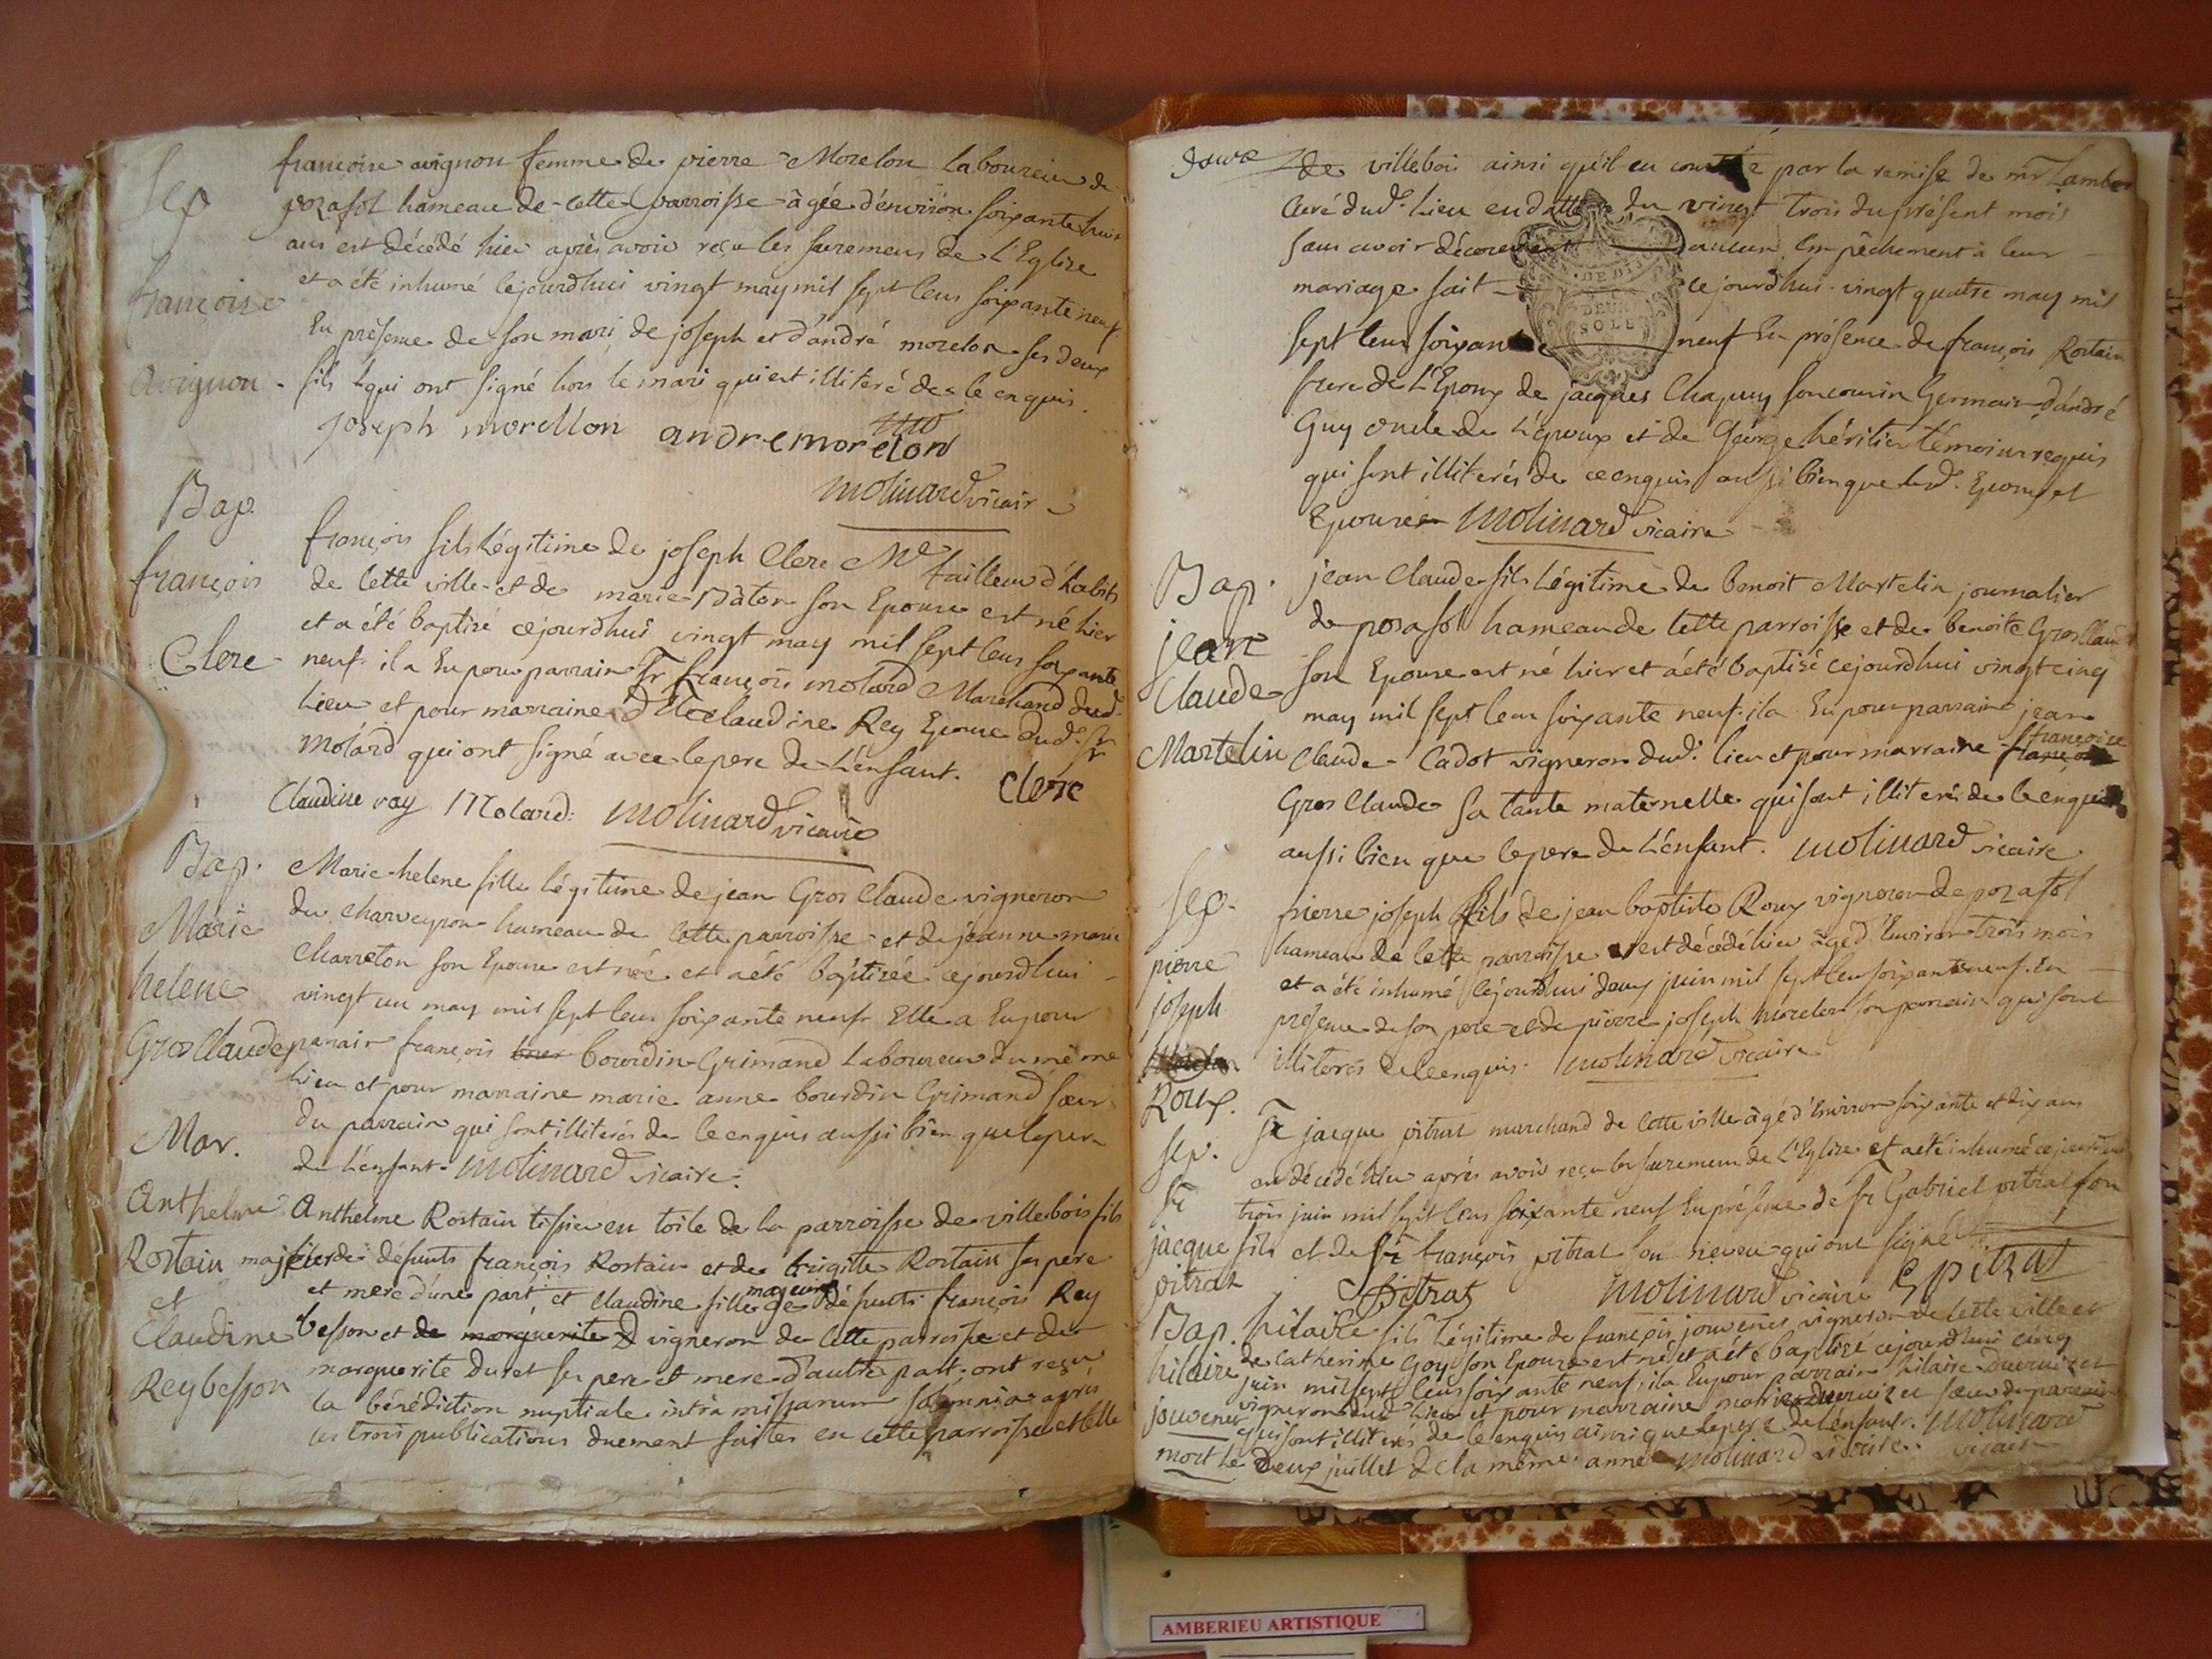 Sep
françoise avignon femme de pierre Morelon laboureur de
posafol hameau de cette parroisse âgée d'environ soixante huit
ans est décédé hier après avoir reçu les sacremens de L'Eglise
françoise
et a été inhumé cejourdhui vingt may mil sept cens soixante neuf
En présence de son mari de joseph et d'andré morelon ses deux
avignon
fils qui ont signé hors le mari qui est illiteré de ce enquis.
joseph morellon andre morelon
molinard vicair
Bap
françois fils Légitime de joseph Clerc Me tailleur d'habits
françois
de cette ville et de marie Baton son Epouse est né hier
et a été baptisé cejourdhui vingt may mil sept cens soixante
Clerc
neuf il a Eu pour parrain Sr françois molard Marchand dud.
lieu et pour marraine Dlle claudine Rey Epouse dud. Sr
Molard qui ont signé avec le pere de L'enfant. Clerc
Claudine ray Molard: molinard vicaire
Bap.
Marie helene fille légitime de jean Gros Claude vigneron
Marie
du charveyron hameau de cette parroisse et de jeanne marie
charreton son Epouse est née et a été baptisée cejourdhui
helene
vingt un may mil sept cens soixante neuf Elle a Eu pour
Gros Claude
parrain françois bourdin Grimand Laboureur du même
lieu et pour marraine marie anne bourdin Grimand sœur
du parrain qui sont illiterés de ce enquis aussi bien que le pere
de L'enfant. molinard vicaire.
Mar.
Anthelme
Anthelme Rostain tissier en toile de la parroisse de villebois fils
Rostain
majeur de défunts françois Rostain et de brigitte Rostain ses pere
et
et mere d'une part et Claudine fille majeure de défunts françois Rey
Claudine
besson et de marguerite D vigneron de cette parroisse et de
Rey besson
marguerite duret ses pere et mere d'autre part. ont reçu
la bénédiction nuptiale intrà missarum solemnia après
les trois publications duement faites en cette parroisse et celle
de villebois ainsi qu'il en conste par la remise de mr Lambert
Curé dud. lieu en datte du vingt trois du présent mois
sans avoir découvert aucun Empêchement à leur
mariage fait cejourdhui vingt quatre may mil
DEUX
SOLS
sept cens soixante neuf En présence de françois Rostain
frere de L'Epoux de jacques Chapuy son cousin Germain d'andré
Guy oncle de L'époux et de George héritier témoins requis
qui sont illiterés de ce enquis aussi bien que led. Epoux et
Epouse molinard vicaire
Bap.
jean Claude fils Légitime de benoit Martelin journalier
jean
de posafol hameau de cette parroisse et de benoite Gros Claude
Claude
son Epouse est né hier et a été baptisé cejourdhui vingt cinq
may mil sept cens soixante neuf. il a Eu pour parrain jean
Martelin
Claude Cadot vigneron dud. lieu et pour marraine françoise
Gros Claude sa tante maternelle qui sont illiterés de ce enquis
aussi bien que le pere de L'enfant. molinard vicaire.
Sep.
pierre joseph fils de jean baptiste Roux vigneron de posafol
pierre
hameau de cette parroisse est décédé hier âgé d'Environ trois mois
joseph
et a été inhumé cejourdhui deux juin mil sept cens soixante neuf. En
présence de son pere et de pierre joseph morelon son parrain qui sont
Roux.
illiterés de ce enquis. molinard vicaire
Sep.
Sr jacque pitrat marchand de cette ville âgé d'Environ soixante et dix ans
Sr
est décédé hier après avoir reçu les sacremens de L'Eglise et a été inhumé cejourdhui
trois juin mil sept cens soixante neuf En présence de Sr Gabriel pitrat son
jacque
fils et de Sr françois pitrat son neveu qui ont signé
pitrat
Pitrat molinard vicaire G pitrat
Bap.
hilaire fils légitime de françois jouvener vigneron de cette ville et
hilaire
de Catherine Goy son Epouse est né et a été baptisé cejourdhui cinq
juin mil sept cens soixante neuf, il a Eu pour parrain hilaire
jouvener
vigneron dud. lieu et pour marraine marie sœur du parrain
qui sont illiterés de ce enquis ainsi que le pere de L'enfant. molinard
mort le deux juillet de la même année molinard vicaire. vicaire
AMBERIEU ARTISTIQUE